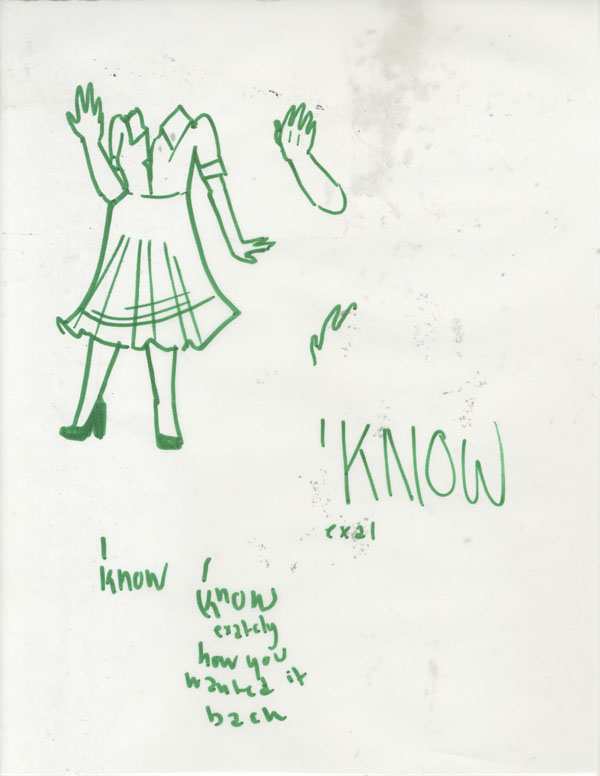 I KNOW
exal
I
know
I
know
exatcly
how you
wanted it
back